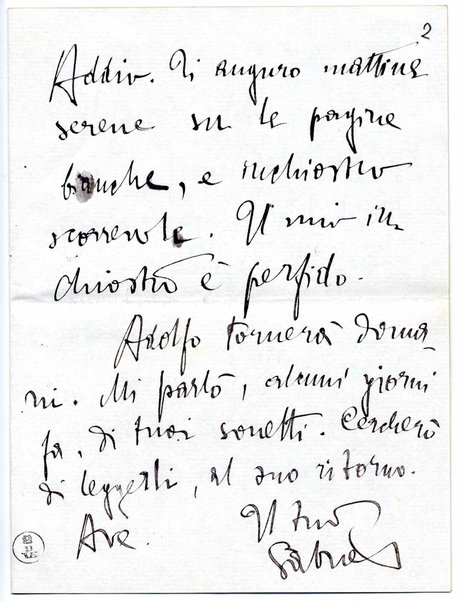 2
Addio. Ti auguro mattine
serene su le pagine
bianche, e inchiostro
scorrevole. Il mio in-
chiostro è perfido.
Adolfo tornerà doma-
ni. Mi parlò, alcuni giorni
fa, di tuoi sonetti. Cercherò
di leggerli, al suo ritorno.
Ave. Il tuo
Gabriel